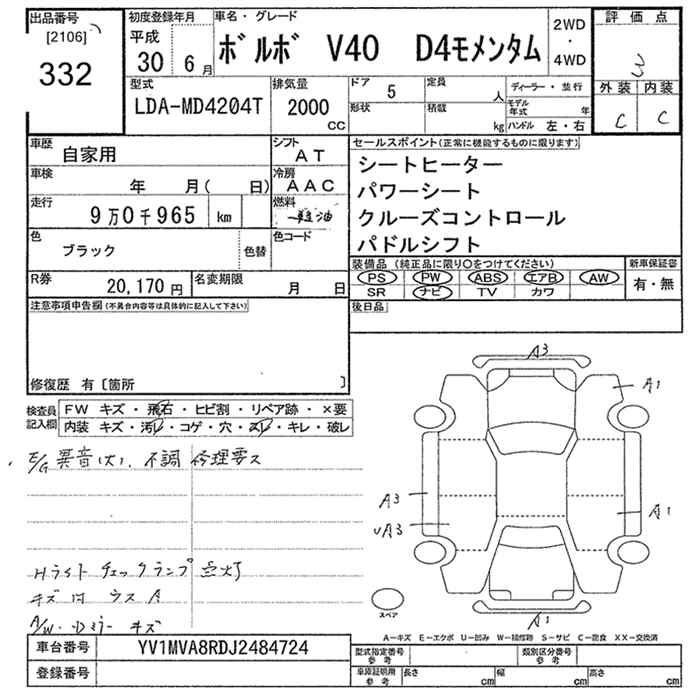 出品番号
[2106]
332
初度登録年月
平成
30 年 6 月
車名・グレード
ボルボ V40 D4モメンタム
2WD
・
4WD
評価点
3
外装 内装
C C
型式
LDA-MD4204T
排気量
2000
CC
ドア 5
定員 人
形状
積載 kg
ディーラー・並行
モデル年式 年
ハンドル 左・右
車歴
自家用
シフト
AT
車検
年 月( 日)
冷房
AAC
走行
9万0千965 km
燃料
軽油
色
ブラック
色替
色コード
R券
20,170 円
名変期限
月 日
セールスポイント(正常に機能するものに限ります)
シートヒーター
パワーシート
クルーズコントロール
パドルシフト
装備品 (純正品に限り○をつけてください)
PS PW ABS エアB AW
SR ナビ TV カワ
新車保証書
有・無
後日品
注意事項申告欄(不具合内容等は具体的に記入して下さい)
修復歴 有〔箇所 〕
検査員
記入欄
FW キズ・飛石・ヒビ割・リペア跡・×要
内装 キズ・汚レ・コゲ・穴・スレ・キレ・破レ
E/G 異音(大)、不調 修理要ス
Hライト チェックランプ 点灯
キズ ウス A
A/W・Dミラー キズ
A3
A1
A3
UA3
A1
A1
スペア
A-キズ E-エクボ U-凹み W-補修跡 S-サビ C-腐食 XX-交換済
車台番号 YV1MVA8RDJ2484724
登録番号
型式指定番号
参考
類別区分番号
参考
車庫証明用
参考
長さ cm
幅 cm
高さ cm